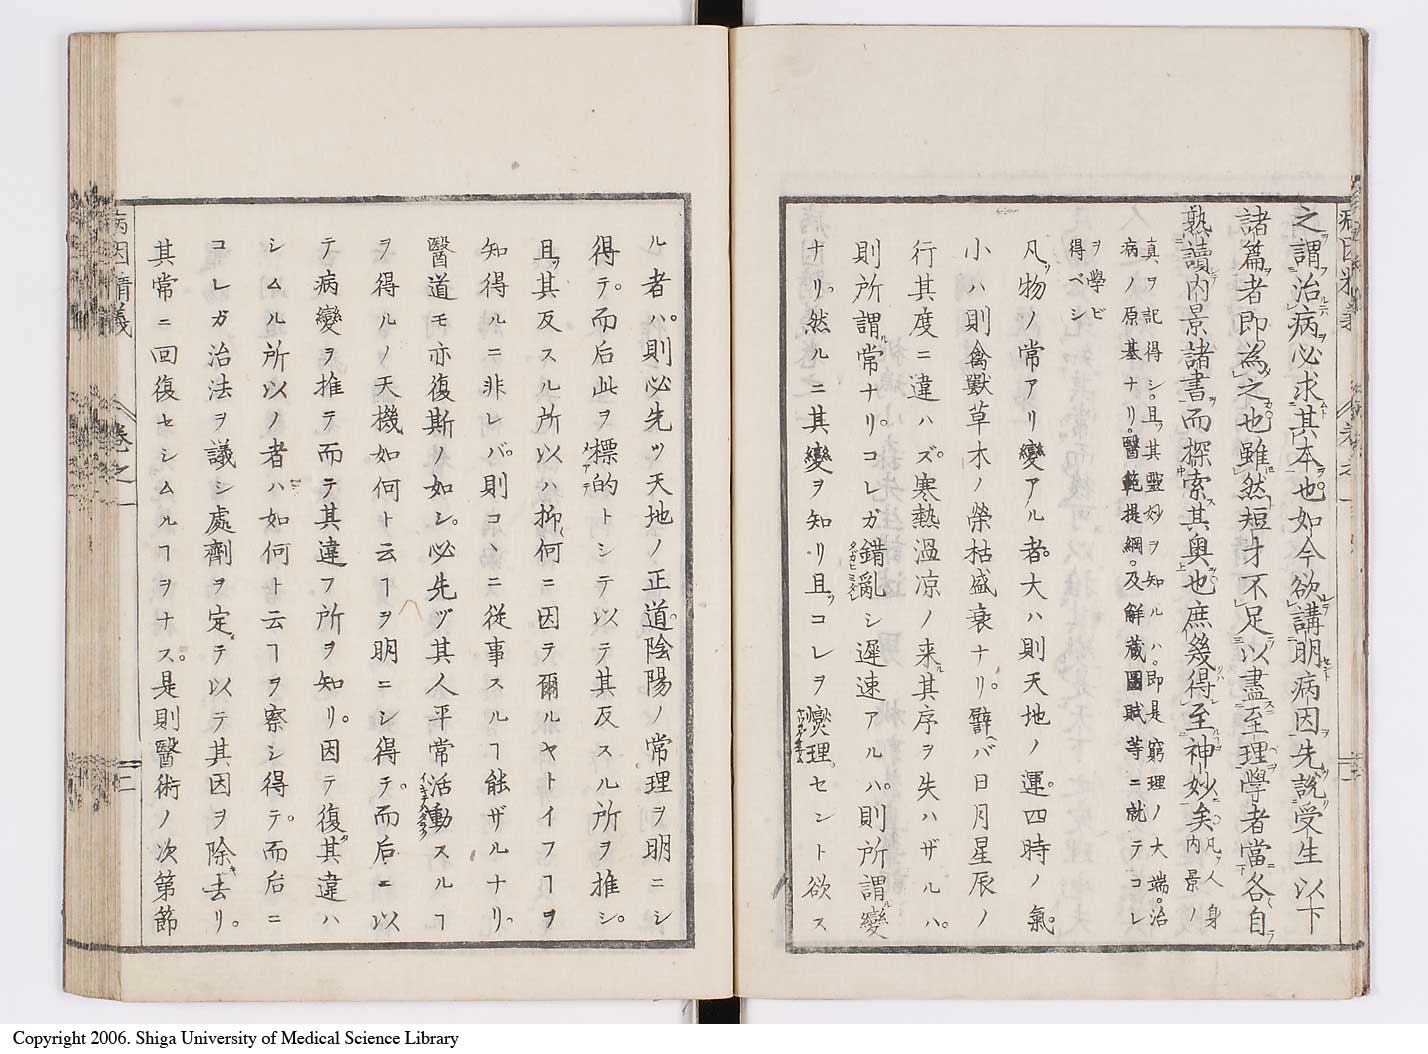 之謂治病必求其本也如今欲講明病因先説受生以下
諸篇者即為之也雖然短才不足以盡至理學者當各自
熟讀内景諸書而探索其奥也庶幾得至神妙矣凡人身
内景ノ
真ヲ記得シ。且ツ其靈妙ヲ知ルハ。即是窮理ノ大端。治
病ノ原基ナリ。醫範提綱。及解藏圖賦等ニ就テコレ
ヲ學ビ
得ベシ
凡ソ物ノ常アリ變アル者。大ハ則天地ノ運。四時ノ氣。
小ハ則禽獸草木ノ榮枯盛衰ナリ。譬ヘバ日月星辰ノ
行其度ニ違ハズ。寒熱温凉ノ来ル其序ヲ失ハザルハ。
則所謂ル常ナリ。コレガ錯亂シ遲速アルハ。則所謂ル變
ナリ。然ルニ其變ヲ知リ且ツコレヲ燮理セント欲ス
ル者ハ。則必先ツ天地ノ正道。陰陽ノ常理ヲ明ニシ
得テ。而后此ヲ標的トシテ以テ其反スル所ヲ推シ。
且ツ其反スル所以ハ抑何ニ因ラ爾ルヤトイフヿヲ
知得ルニ非レバ。則コヽニ従事スルヿ能ザルナリ。
醫道モ亦復斯ノ如シ。必先ヅ其人平常活動スルヿ
ヲ得ルノ天機如何ト云ヿヲ明ニシ得テ。而后ニ以
テ病變ヲ推テ而テ其違フ所ヲ知リ。因テ復タ其違ハ
シムル所以ノ者ハ如何ト云ヿヲ察シ得テ。而后ニ
コレガ治法ヲ議シ處劑ヲ定テ以テ其因ヲ除キ去リ。
其常ニ回復セシムルヿヲナス。是則醫術ノ次第節
病因精義
卷之一
二
Copyright 2006. Shiga University of Medical Science Library